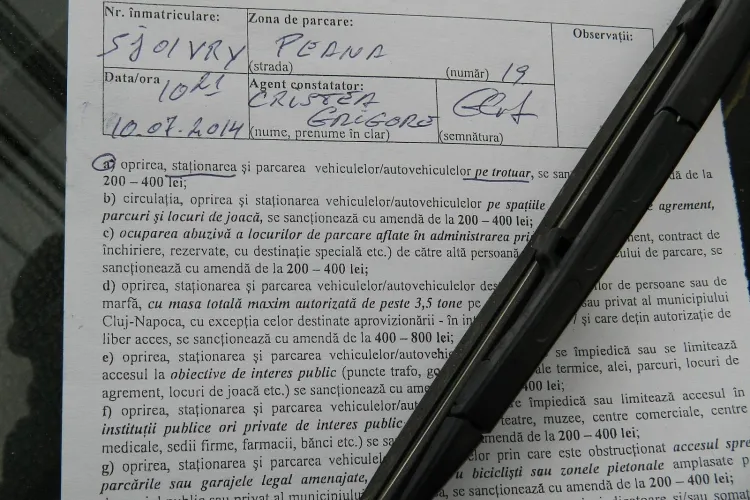 Nr. înmatriculare: Zona de parcare: Observații:
SJ 01 VRY PEANA
(strada) (număr) 19
Data/ora 10 21 Agent constatator:
CRISTEA
GRIGORE
10.07.2014 (nume, prenume în clar) (semnătura)
a) oprirea, staționarea și parcarea vehiculelor/autovehiculelor pe trotuar, se de la
200 – 400 lei;
b) circulația, oprirea și staționarea vehiculelor/autovehiculelor pe spațiile agrement,
parcuri și locuri de joacă, se sancționează cu amendă de la 200 – 400 lei;
c) ocuparea abuzivă a locurilor de parcare aflate în administrarea contract de
închiriere, rezervate, cu destinație specială etc.) de către altă de parcare, se
sancționează cu amendă de la 200 – 400 lei;
d) oprirea, staționarea și parcarea vehiculelor/autovehiculelor de persoane sau de
marfă, cu masa totală maxim autorizată de peste 3,5 tone sau privat al municipiului
Cluj-Napoca, cu excepția celor destinate aprovizionării - în și care dețin autorizație de
liber acces, se sancționează cu amendă de la 400 – 800 lei;
e) oprirea, staționarea și parcarea se împiedică sau se limitează
accesul la obiective de interes public (puncte trafo, termice, alei, parcuri, locuri de
agrement, locuri de joacă etc.) se sancționează cu lei;
f) oprirea, staționarea și parcarea împiedică sau limitează accesul în
instituții publice ori private de interes public muzee, centre comerciale, centre
medicale, sedii firme, farmacii, bănci etc.) se amendă de la 200 – 400 lei;
g) oprirea, staționarea și parcarea prin care este obstrucționat accesul spre
parcările sau garajele legal amenajate, bicicliști sau zonele pietonale amplasate
public sau privat al municipiului de la 200 – 400 lei;